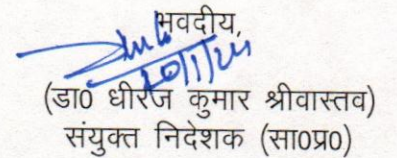 भवदीय,
(डा0 धीरज कुमार श्रीवास्तव)
संयुक्त निदेशक (सा0प्र0)